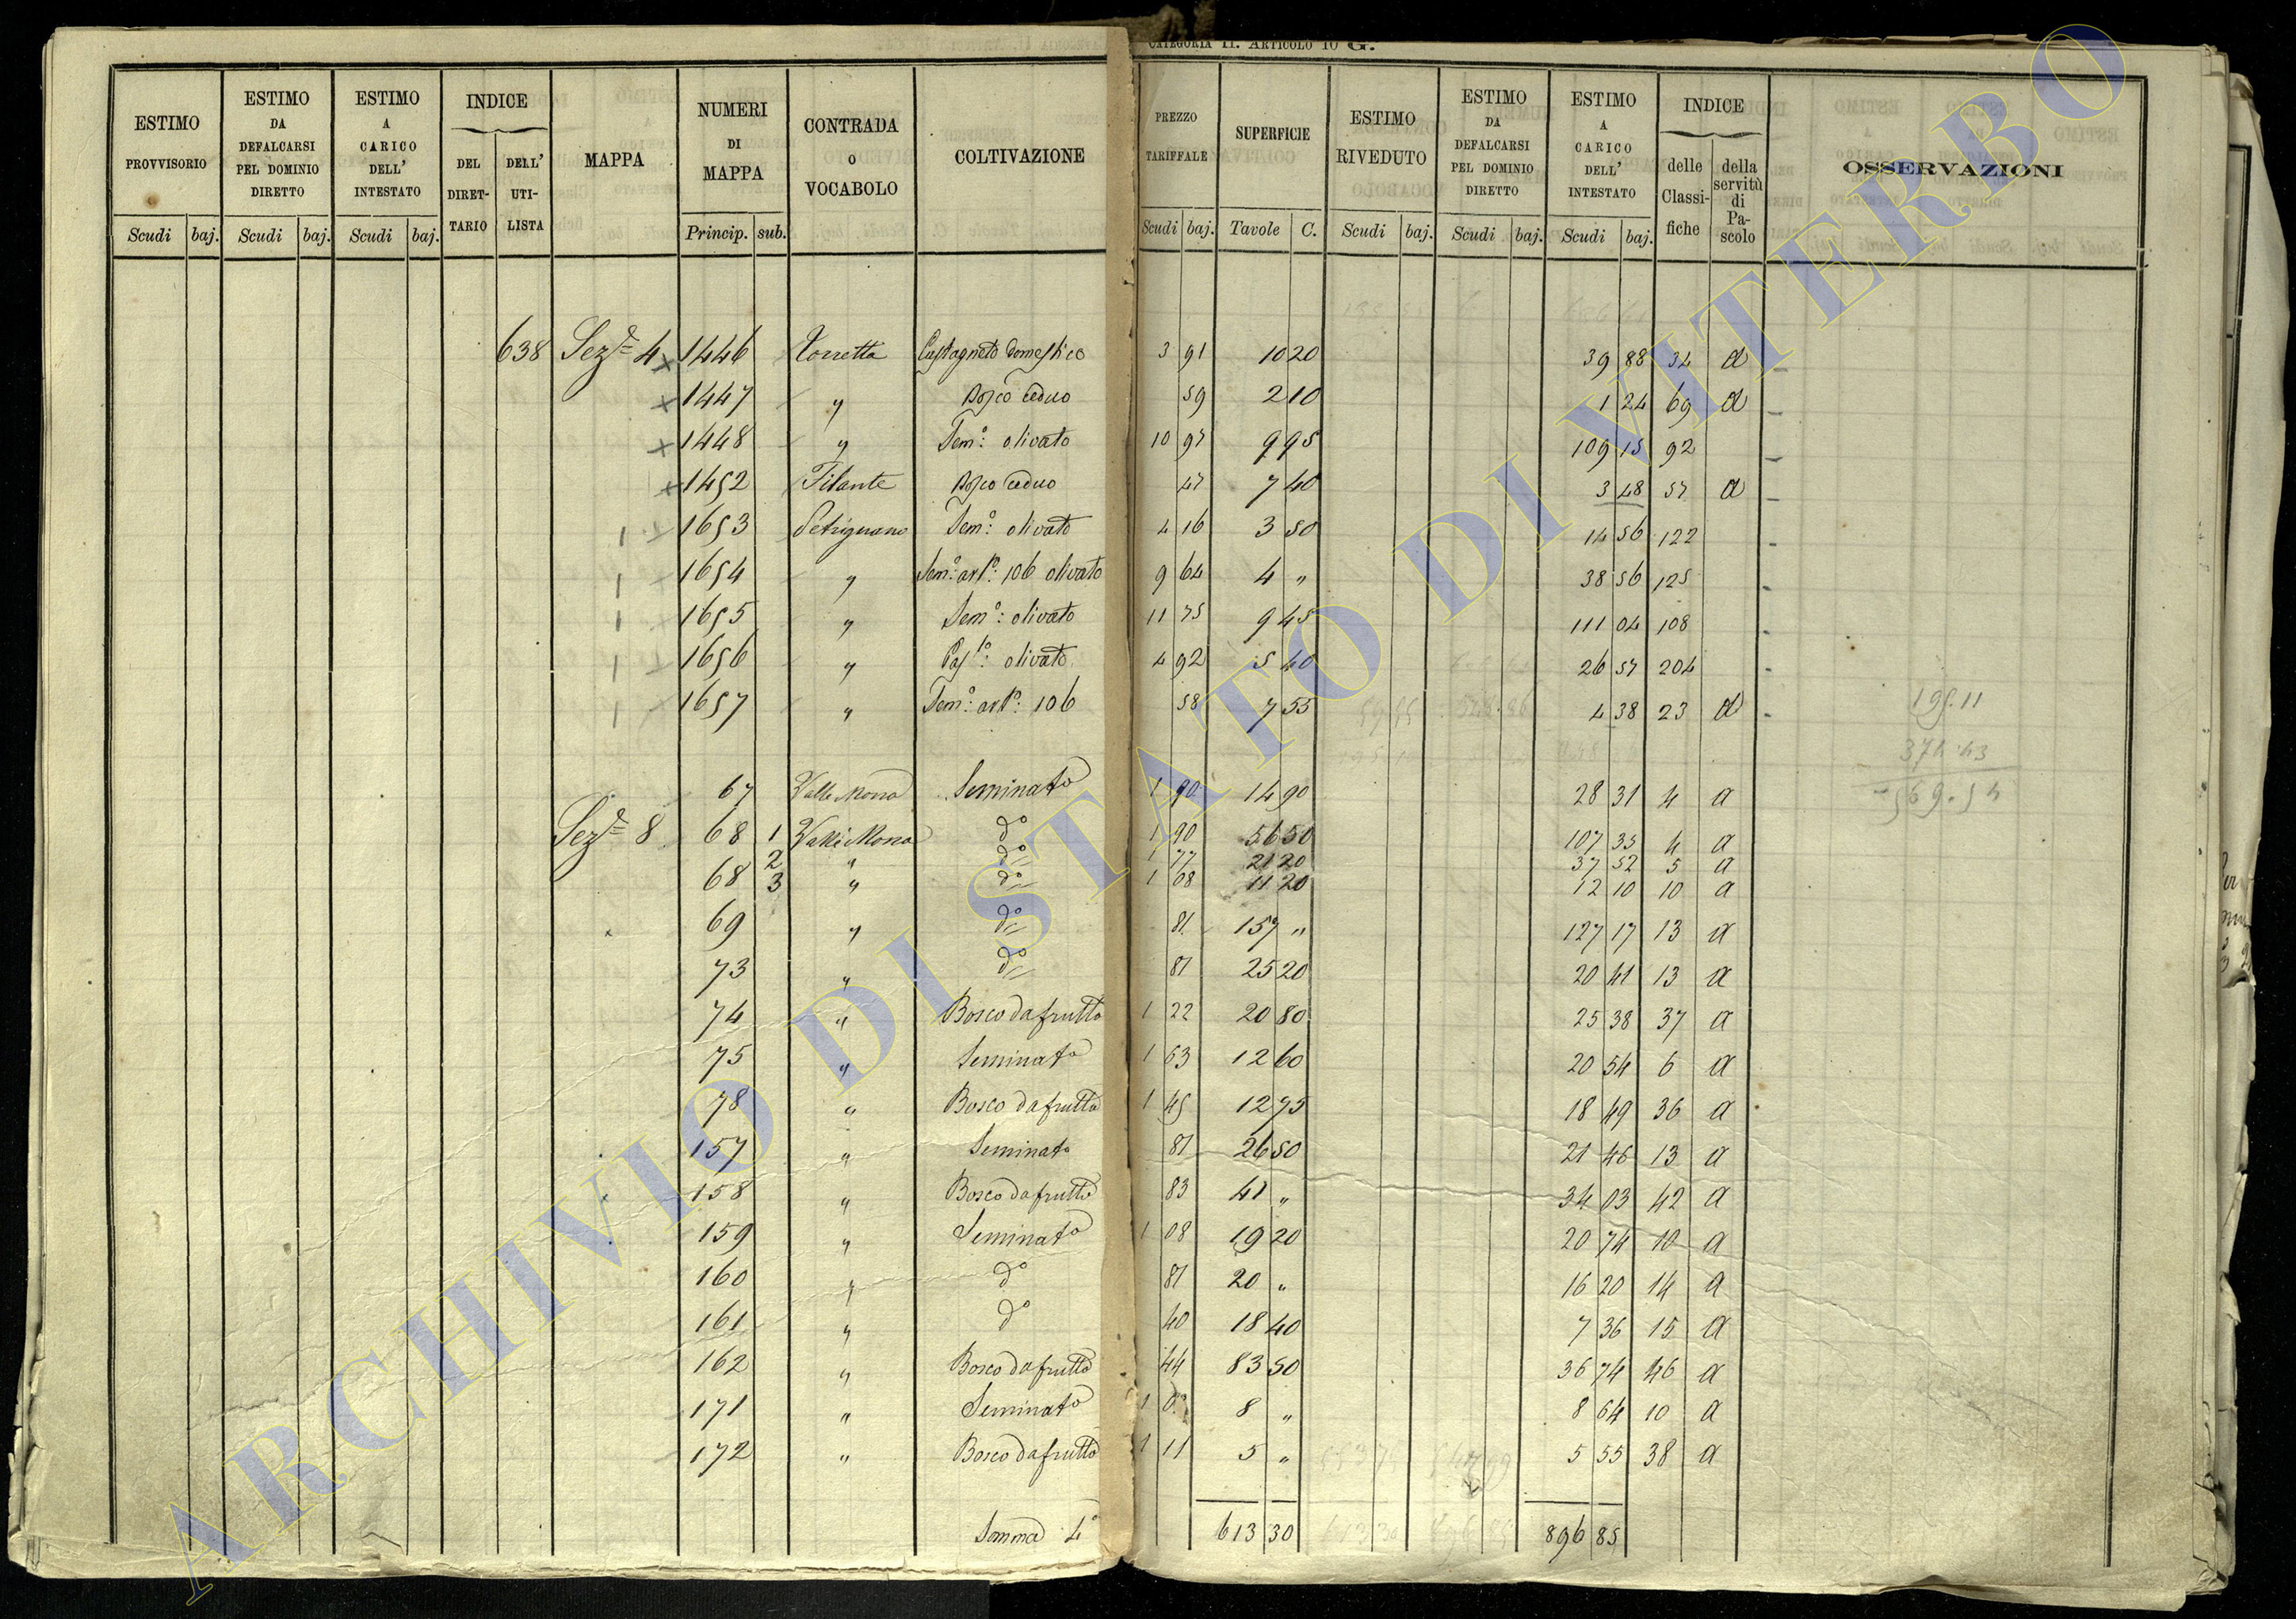 CATEGORIA II. ARTICOLO 10 G.
ESTIMO PROVVISORIO Scudi baj.
ESTIMO DA DEFALCARSI PEL DOMINIO DIRETTO Scudi baj.
ESTIMO A CARICO DELL' INTESTATO Scudi baj.
INDICE DEL DIRETTARIO DELL' UTILISTA
MAPPA
NUMERI DI MAPPA Princip. sub.
CONTRADA O VOCABOLO
COLTIVAZIONE
PREZZO TARIFFALE Scudi baj.
SUPERFICIE Tavole C.
ESTIMO RIVEDUTO Scudi baj.
ESTIMO DA DEFALCARSI PEL DOMINIO DIRETTO Scudi baj.
ESTIMO A CARICO DELL' INTESTATO Scudi baj.
INDICE delle Classifiche della servitù di Pascolo
OSSERVAZIONI
638 Sez.e 4 1446 Torretta Castagneto domestico 3 91 10 20 39 88 34 a
1447 " Bosco ceduo 59 2 10 1 24 69 a
1448 " Sem.o: olivato 10 97 9 95 109 15 92
1452 Filante Bosco ceduo 47 7 40 3 48 57 a
1653 Petrignano Sem.o: olivato 4 16 3 50 14 56 122
1654 " Sem.o: art.o: 106 olivato 9 64 4 " 38 56 125
1655 " Sem.o: olivato 11 75 9 45 111 04 108
1656 " Pas.to: olivato 4 92 5 40 26 57 204
1657 " Sem.o: art.o: 106 58 7 55 4 38 23 a
195.11
374.43
569.54
67 Valle Mora Seminato 1 90 14 90 28 31 4 a
Sez.e 8 68 1 Valle Mora do 1 90 56 50 107 35 4 a
2 " do 1 77 21 20 37 52 5 a
68 3 " do 1 08 11 20 12 10 10 a
69 " do 81 157 " 127 17 13 a
73 " do 81 25 20 20 41 13 a
74 " Bosco da frutto 1 22 20 80 25 38 37 a
75 " Seminato 1 63 12 60 20 54 6 a
78 " Bosco da frutto 1 45 12 75 18 49 36 a
157 " Seminato 81 26 50 21 46 13 a
158 " Bosco da frutto 83 41 " 34 03 42 a
159 " Seminato 1 08 19 20 20 74 10 a
160 " do 81 20 " 16 20 14 a
161 " do 40 18 40 7 36 15 a
162 " Bosco da frutto 44 83 50 36 74 46 a
171 " Seminato 1 8 " 8 64 10 a
172 " Bosco da frutto 1 11 5 " 5 55 38 a
Somma 4a 613 30 896 85
ARCHIVIO DI STATO DI VITERBO